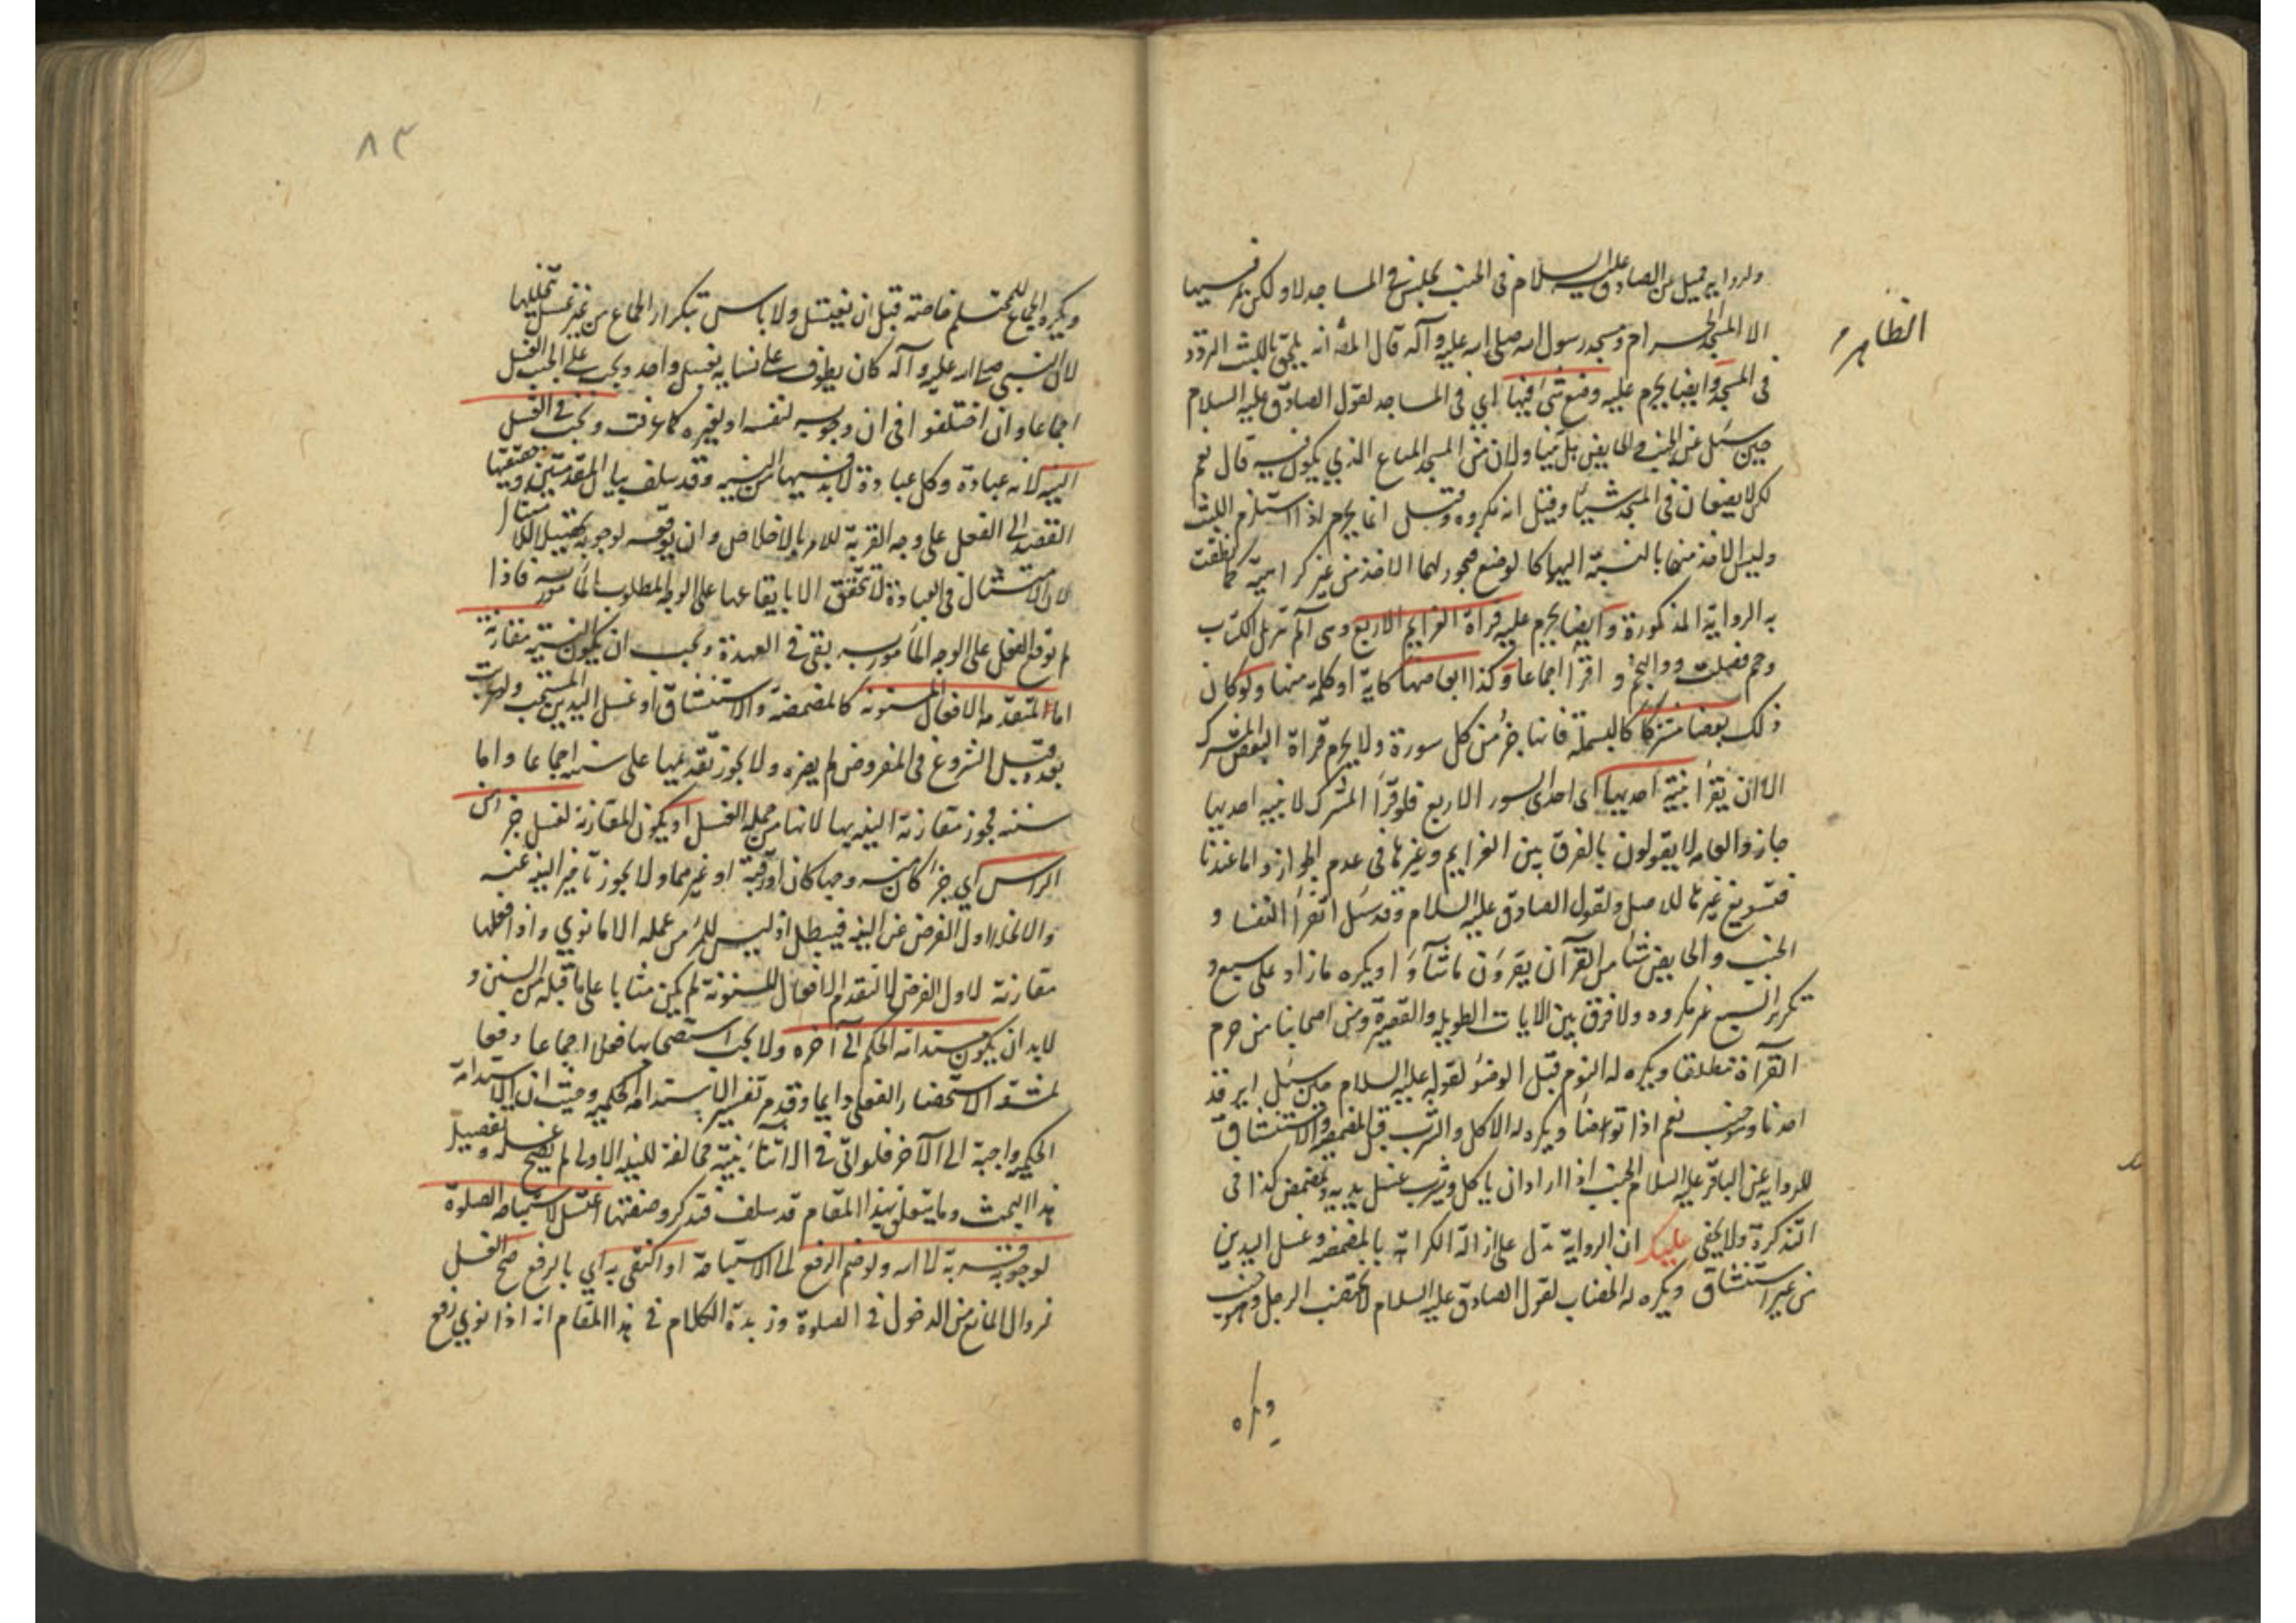 ولرواية جميل عن الصادق عليه السلام في الجنب يجلس في المساجد لا ولكن يمر فيها
الا المسجد الحرام ومسجد رسول الله صلى الله عليه وآله قال المص انه يلحق باللبث التردد
الظاهر
في المسجد وايضا يحرم عليه وضع شئ فيها اي في المساجد لقول الصادق عليه السلام
حين سئل عن الجنب والحايض يتناولان من المسجد المتاع الذي يكون فيه قال نعم
لكن لا يضعان في المسجد شيئا وقيل انه مكروه وقيل انما يحرم اذا استلزم اللبث
وليس الاخذ منها بالنسبة اليهما كالوضع فيجوز لهما الاخذ من غير كراهية كما نطقت
به الرواية المذكورة وايضا يحرم عليه قراة العزايم الاربع وهي آلم تنزيل الكتاب
وحم فصلت ووالنجم و اقرا اجماعا وكذا ابعاضها كاية او كلمة منها ولو كان
ذلك بعضا مشتركا كالبسملة فانها جزء من كل سورة ولا يحرم قراة البعض المشترك
الا ان يقرأ بنية احديها اي احدى السور الاربع فلو قرأ المشترك لا بنية احديها
جاز والعامة لا يقولون بالفرق بين العزايم وغيرها في عدم الجواز واما عندنا
فتسويغ غيرها للاصل ولقول الصادق عليه السلام وقد سئل اتقرأ النفسا و
الجنب والحايض شئا من القرآن يقرؤن ما شآؤا ويكره مازاد على سبع و
تكرير السبع غير مكروه ولا فرق بين الايات الطويلة والقصيرة ومن اصحابنا من حرم
القرآة مطلقا ويكره له النوم قبل الوضوء لقوله عليه السلام حين سئل ايرقد
احدنا وهو جنب نعم اذا توضأ ويكره له الاكل والشرب قبل المضمضة والاستنشاق
للرواية عن الباقر عليه السلام الجنب اذا اراد ان ياكل ويشرب غسل يديه وتمضمض كذا في
التذكرة ولا يخفى عليك ان الرواية تدل على ازالة الكراهة بالمضمضة وغسل اليدين
من غير استنشاق ويكره له الخضاب لقول الصادق عليه السلام لا يختضب الرجل وهو جنب
ويكره
٨٣
ويكره الجماع للمحتلم خاصة قبل ان يغتسل ولا باس بتكرار الجماع من غير غسل تخللها
لان النبي صلى الله عليه وآله كان يطوف على نسايه بغسل واحد ويجب على الجنب الغسل
اجماعا وان اختلفوا في ان وجوبه لنفسه او لغيره كما عرفت ويجب في الغسل
النية لانه عبادة وكل عبادة لا بد فيها من النية وقد سلف بيان المقدمتين وحقيقتها
القصد الى الفعل على وجه القربة للامر بالاخلاص وان يوقعه لوجوبه تحصيلا للامتثال
لان الامتثال في العبادة لا يتحقق الا بايقاعها على الوجه المطلوب المأمور به فاذا
لم توقع الفعل على الوجه المأمور به بقي في العهدة ويجب ان يكون النية مقارنة
اما لمتقدمه الافعال المسنونة كالمضمضة والاستنشاق او غسل اليدين المستحب ولو عزبت
بعده وقبل الشروع في المفروض لم يضره ولا يجوز تقديمها على سننه اجماعا واما
سننه فيجوز مقارنة النية بها لانها من جملة الغسل او يكون المقارنة لغسل جزء من
الراس اي جزء كان منه وجها كان او رقبة او غيرهما ولا يجوز تاخير النية عنه
والا لخلا اول الفرض عن النية فيبطل اذ ليس للمرء من عمله الا ما نوي واذا فعلها
مقارنة لاول الفرض لا لتقدم الافعال المسنونة لم يكن مثابا على ما قبله من السنن و
لابد ان يكون مستدامة الحكم الى آخره ولا يجب استصحابها فعلا اجماعا دفعا
لمشقة الاستحضار الفعلي دايما وقدم تفسير الاستدامة الحكمية وحيث ان الاستدامة
الحكمية واجبة الى الآخر فلو اتى في الاثناء بنية مخالفة للنية الاولى لم يصح غسله وتفصيل
هذا البحث وما يتعلق بهذا المقام قد سلف فتذكر وصفتها اغتسل لاستباحة الصلوة
لوجوبه قربة لا الله ولو ضم الرفع الى الاستباحة او اكتفى به اي بالرفع صح الغسل
لزوال المانع من الدخول في الصلوة وزبدة الكلام في هذا المقام انه اذا نوي رفع